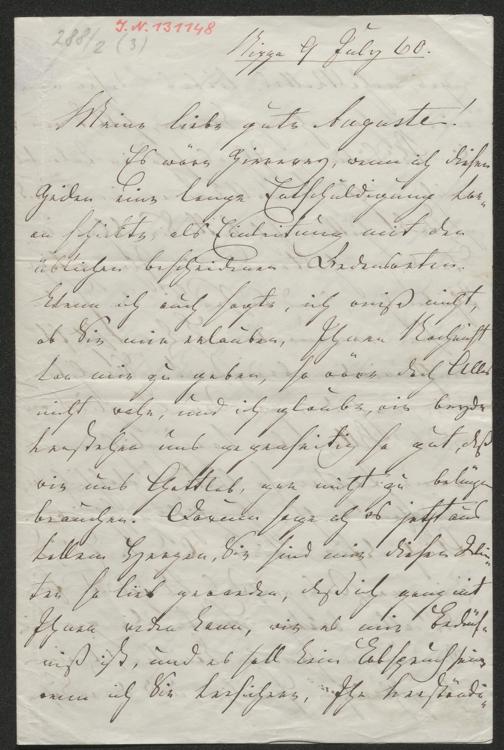 288/2 (3)
J.N. 131148
Nizza 9 July 60.
Meine liebe gute Auguste!
Es wäre wenn ich diesen
Zeilen eine lange Entschuldigung vor-
an schickte, als Einleitung mit den
üblichen bescheidenen Redensarten.
Wenn ich auch sagte, ich weiß nicht,
ob Sie mir erlauben, Ihnen Nachricht
von mir zu geben, so wäre doch Alles
nicht wahr, und ich glaube, wir beyde
verstehen uns gegenseitig so gut, daß
wir uns Gottlob, gar nicht zu belügen
brauchen. Darum sage ich es jetzt aus
vollem Herzen, Sie sind mir diesen Win-
ter so lieb geworden, daß ich ganz mit
Ihnen reden kann, wie es mir Bedürf-
niß ist, und es soll kein Lobspruch sein
wenn ich Sie versichere, Ihr Verständ-